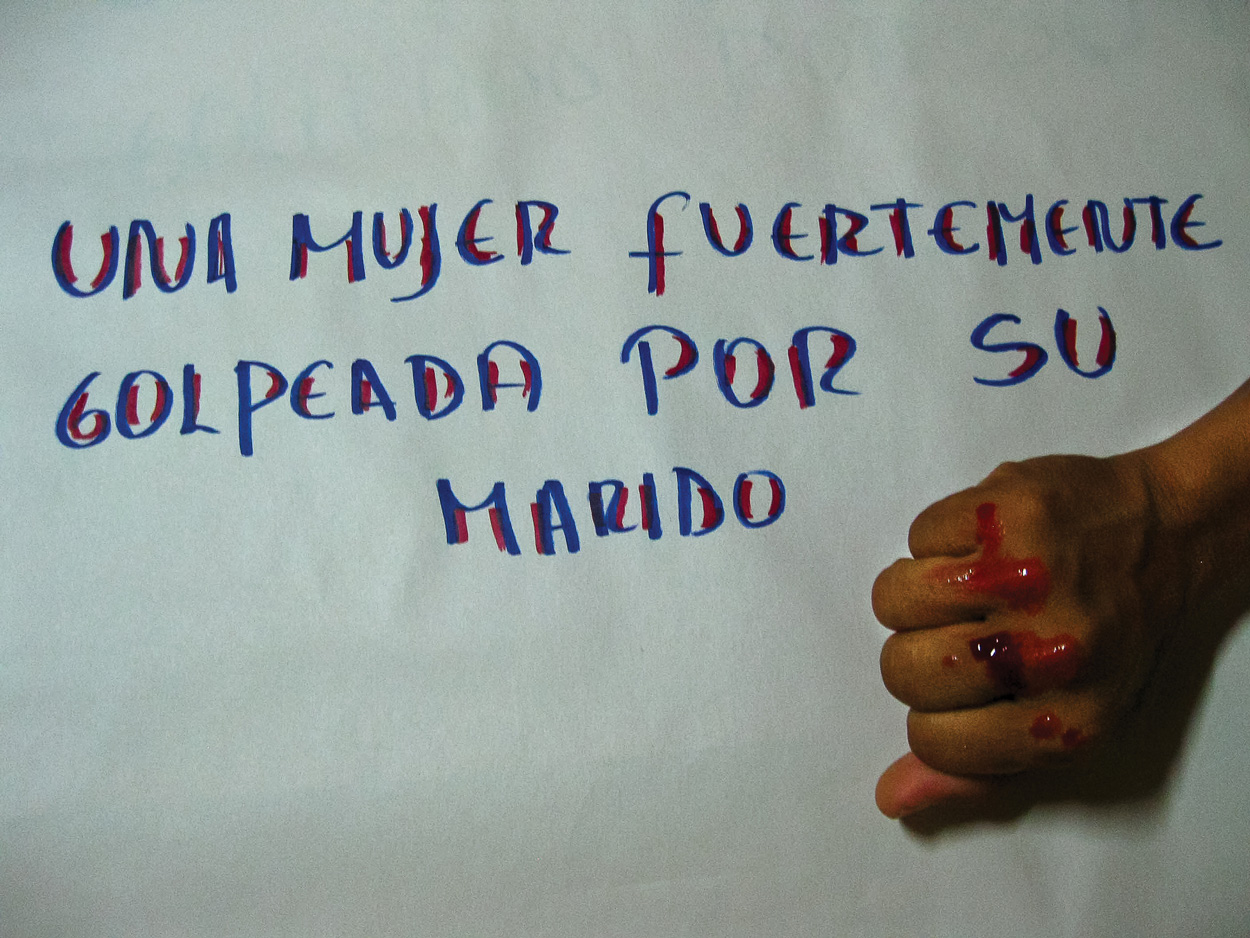 UNA MUJER fUERTEMENTE
GOLPEADA POR SU
MARIDO